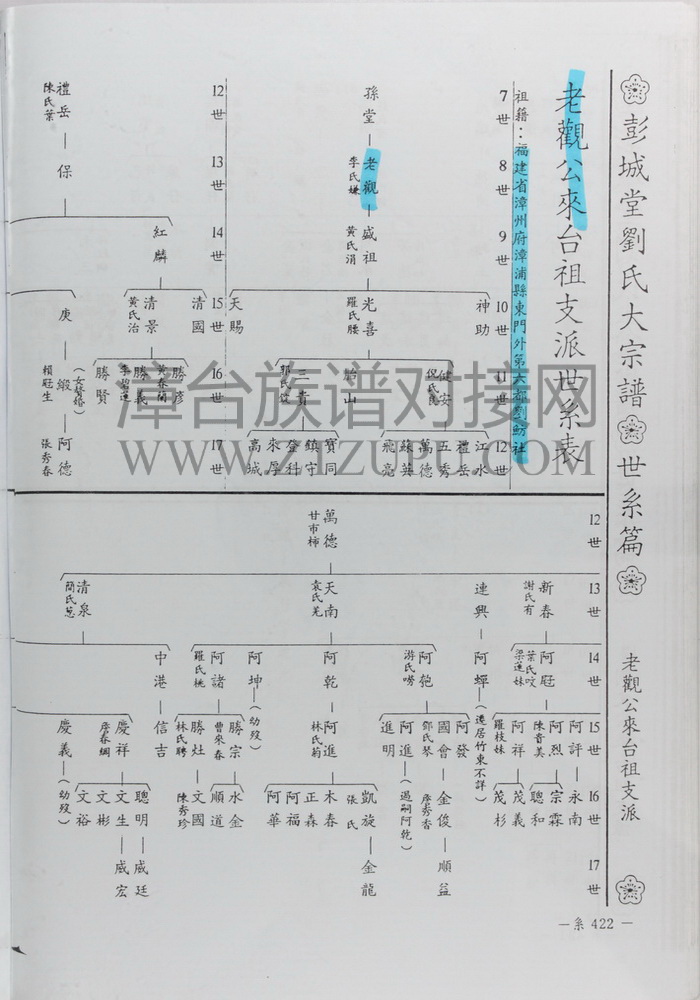 彭城堂劉氏大宗譜 世系篇 老觀公來台祖支派
老觀公來台祖支派世系表
祖籍：福建省漳州府漳浦縣東門外第六都劉
7世 8世 9世 10世 11世 12世
孫堂 老觀 盛祖
李氏
黃氏涓
神助 光喜 天賜
羅氏腰
健安 胎山 三貴
倪氏
江水 禮岳 五秀 萬德 蘇英 飛亮
寶同 鎮守 登科 來厚 高城
12世 13世 14世 15世 16世 17世
禮岳 保 紅麟
陳氏葉
清國 清景 庚
黃氏治
勝彥 勝義 勝賢
黃春蘭
李碧蓮
緞 (女贅婚) 阿德
賴冠生
張秀春
12世 13世 14世 15世 16世 17世
萬德
甘市柿
新春 連興 天南 清泉
謝氏有
袁氏羌
簡氏葱
阿冠 阿蟬(遷居竹東不詳)
葉氏呅
梁蓮妹
阿匏 阿乾 阿坤(幼歿) 阿諸 中港
游氏嘮
羅氏桃
阿評 阿烈 阿祥
陳香美
羅枝妹
永南 宗霖 聰和 茂義 茂杉
阿發 國會 阿進(過嗣阿乾) 進明
鄧氏琴
金俊 順益
詹秀香
阿進
林氏菊
凱旋 木春 正森 阿福 阿華 金龍
張氏
勝宗 勝灶
曹來春
林氏聘
水金 順道 文國
陳秀珍
信吉
慶祥 慶義(幼歿)
詹春綢
聰明 文生 文彬 文裕
威廷 威宏
—系 422 —
漳台族谱对接网
WWW.ZTZUPU.COM